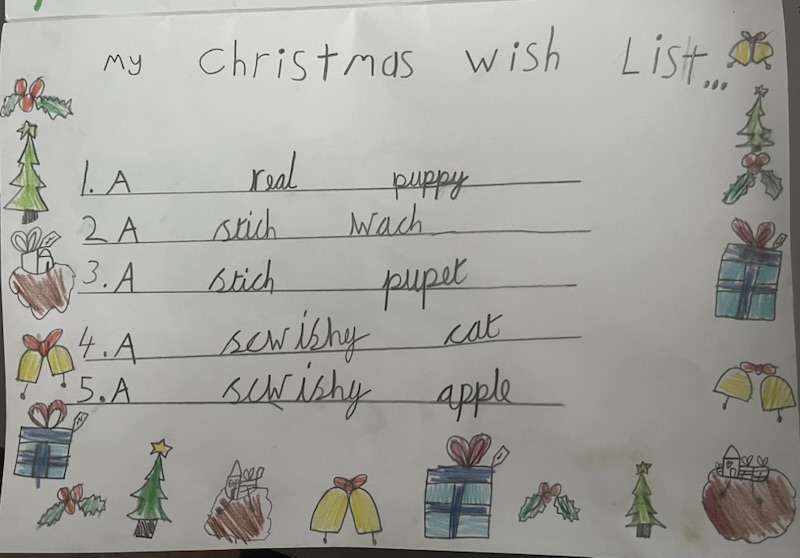 My Christmas wish List...
1. A real puppy
2 A stich wach
3. A stich pupet
4. A scwishy cat
5. A scwishy apple